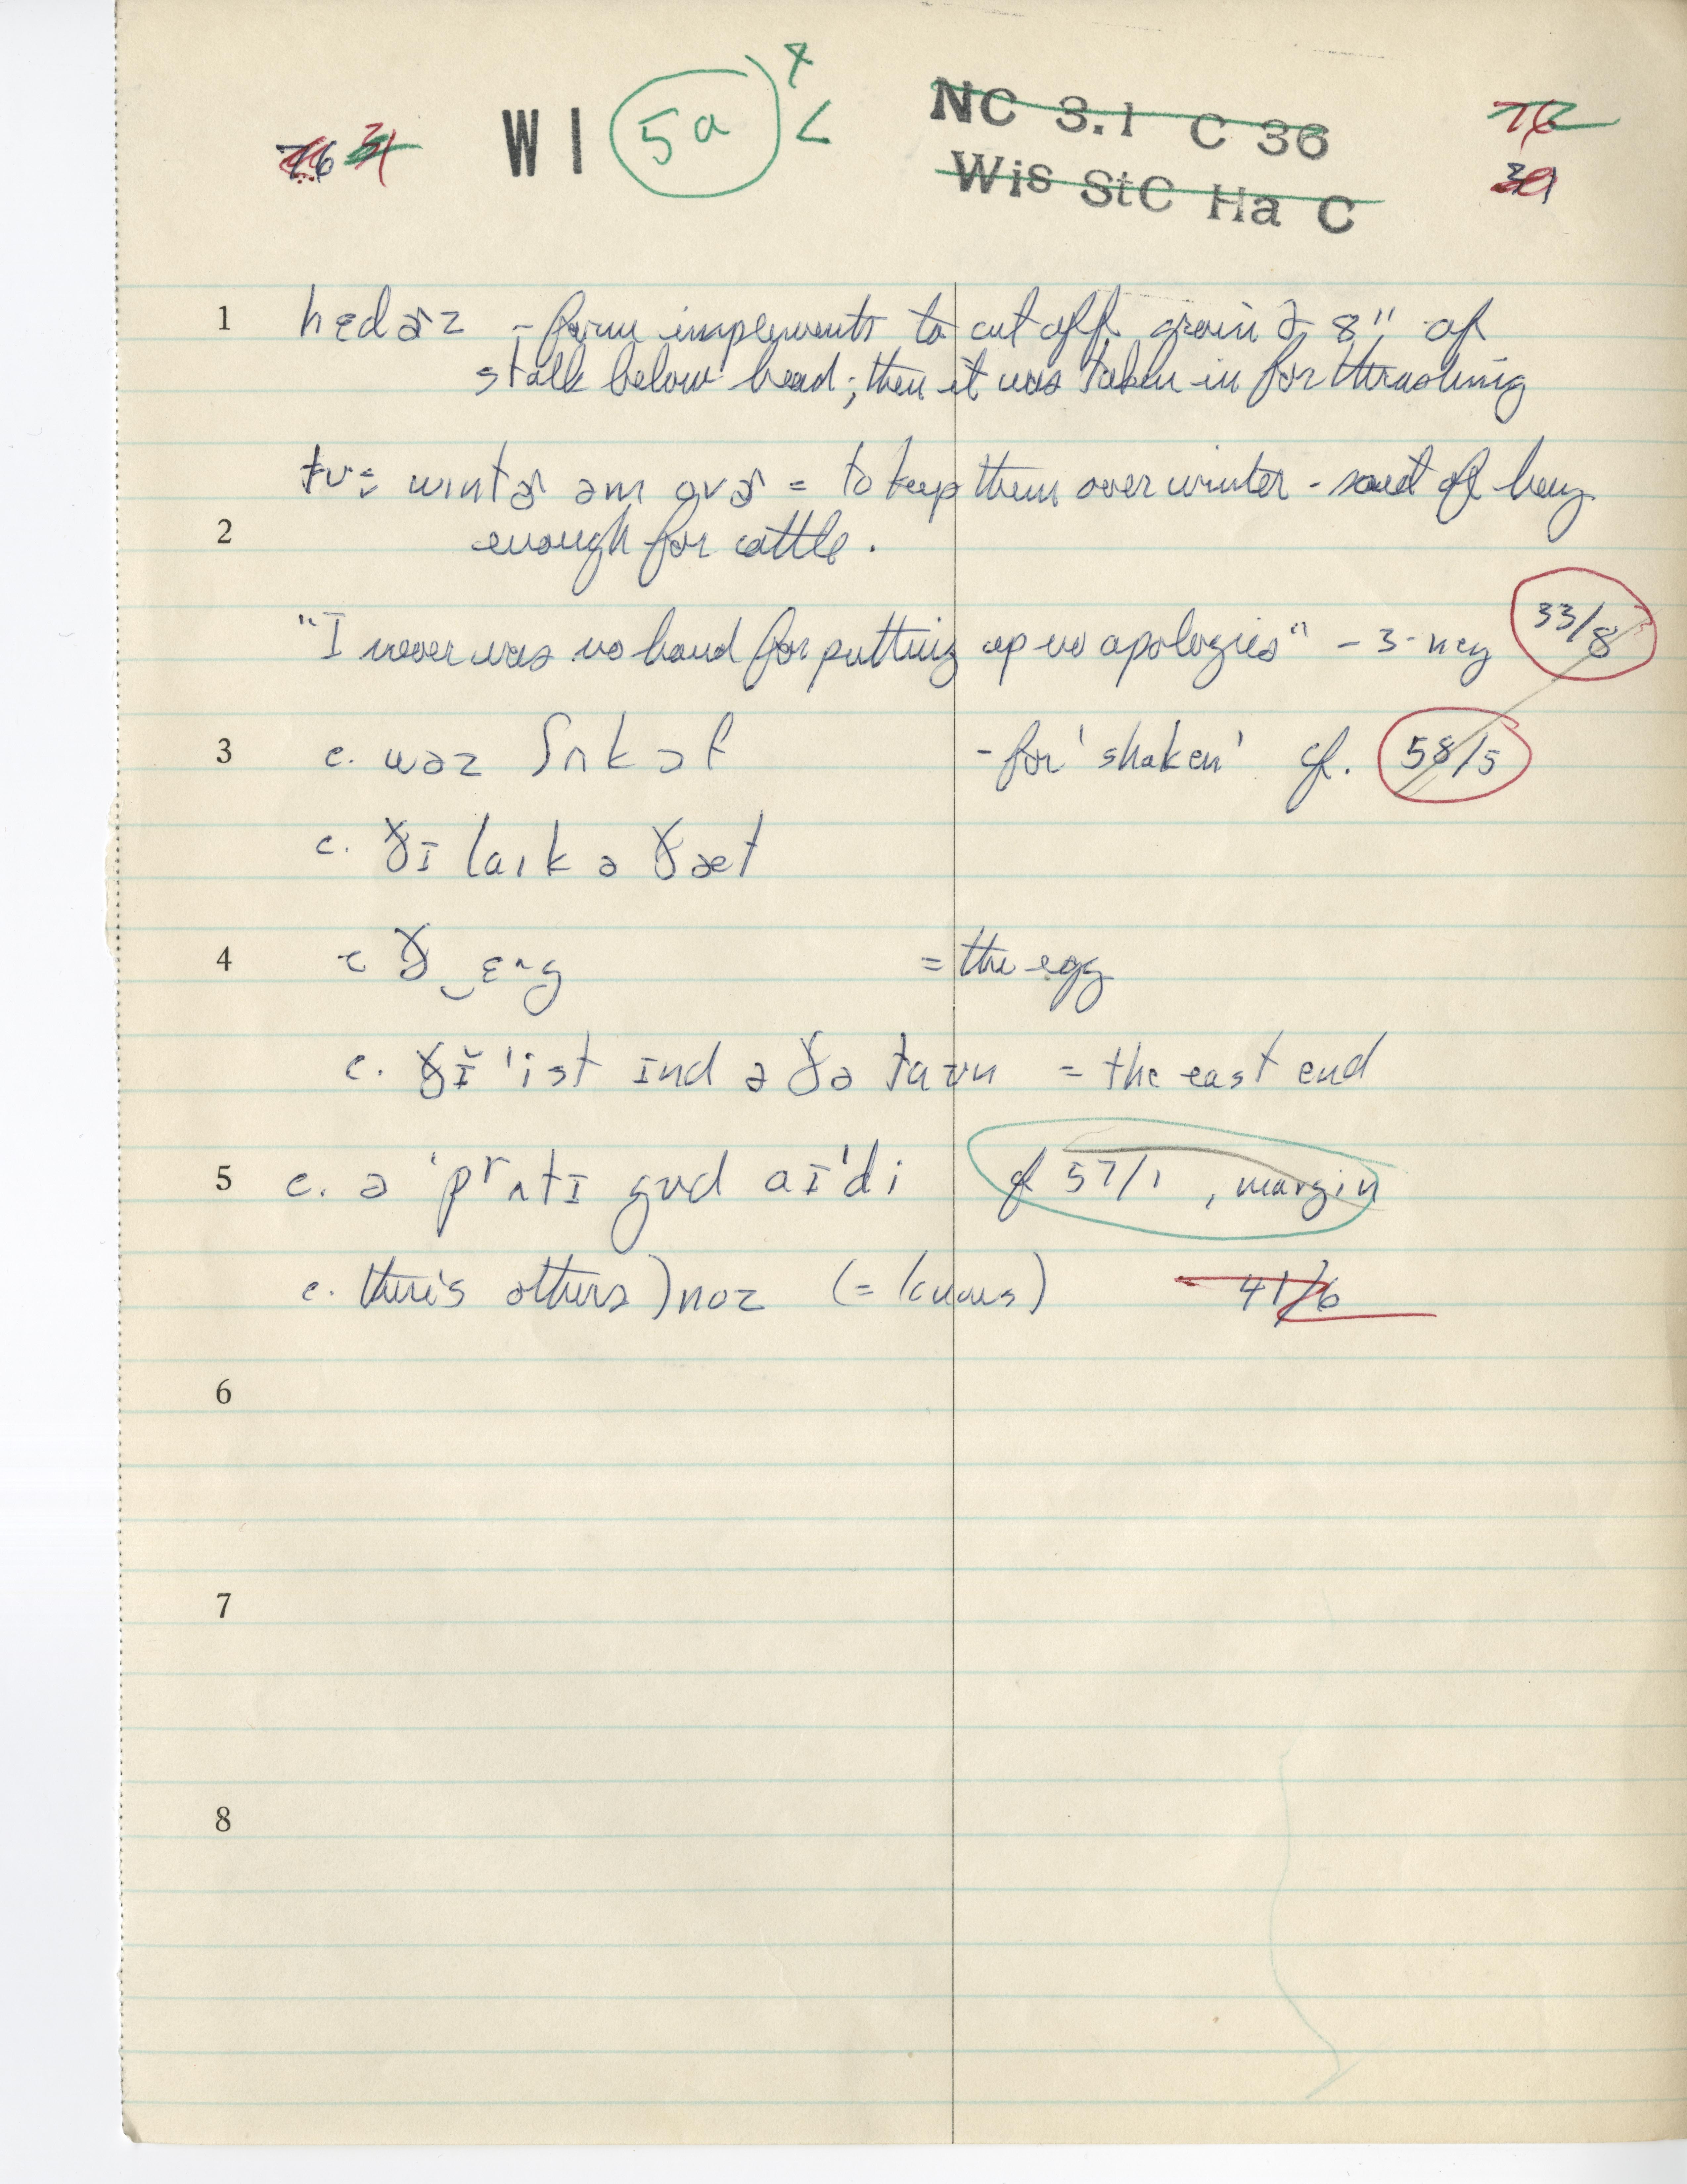 WI 5a x <
NC 3.1 C 36
Wis StC Ha C
76
31
1 hɛdɚz – farm implements to cut off grain & 8" of
stalk below head; then it was taken in for thrashing
wɪntɚ əm ovɚ = to keep them over winter – said of hay
2 enough for cattle.
"I never was no hand for putting up no apologies" – 3-neg 33/8
3 c. wəz ʃʌkət – for 'shaken' cf. 58/5
c. ðɪ laɪk ə ðæt
4 c ð‿ɛ^g = the egg
c. ðɪ̆ 'ist ɪnd ə ðə taʊn = the east end
5 c. ə 'prʌtɪ gʊd aɪ'di cf 57/1, margin
c. there's others) noz (= knows) 41/6
6
7
8